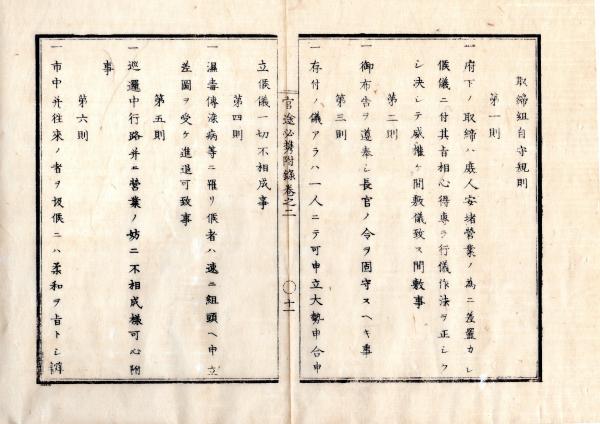 取締組自守規則
第一則
一 府下ノ取締ハ庶人安堵營業ノ為ニ差置カレ
候儀ニ付其旨相心得専ラ行儀作法ヲ正シク
シ決シテ威權ケ間敷儀致ス間敷事
第二則
一 御布告ヲ遵奉シ長官ノ令ヲ固守スヘキ事
第三則
一 存付ノ儀アラハ一人ニテ可申立大勢申合申
官途必携附錄卷之二
〇十一
立候儀一切不相成事
第四則
一 濕毒傳染病等ニ罹リ候者ハ速ニ組頭ヘ申立
差圖ヲ受ケ進退可致事
第五則
一 巡邏中行路并ニ營業ノ妨ニ不相成様可心附
事
第六則
一 市中并往來ノ者ヲ扱候ニハ柔和ヲ旨トシ諄